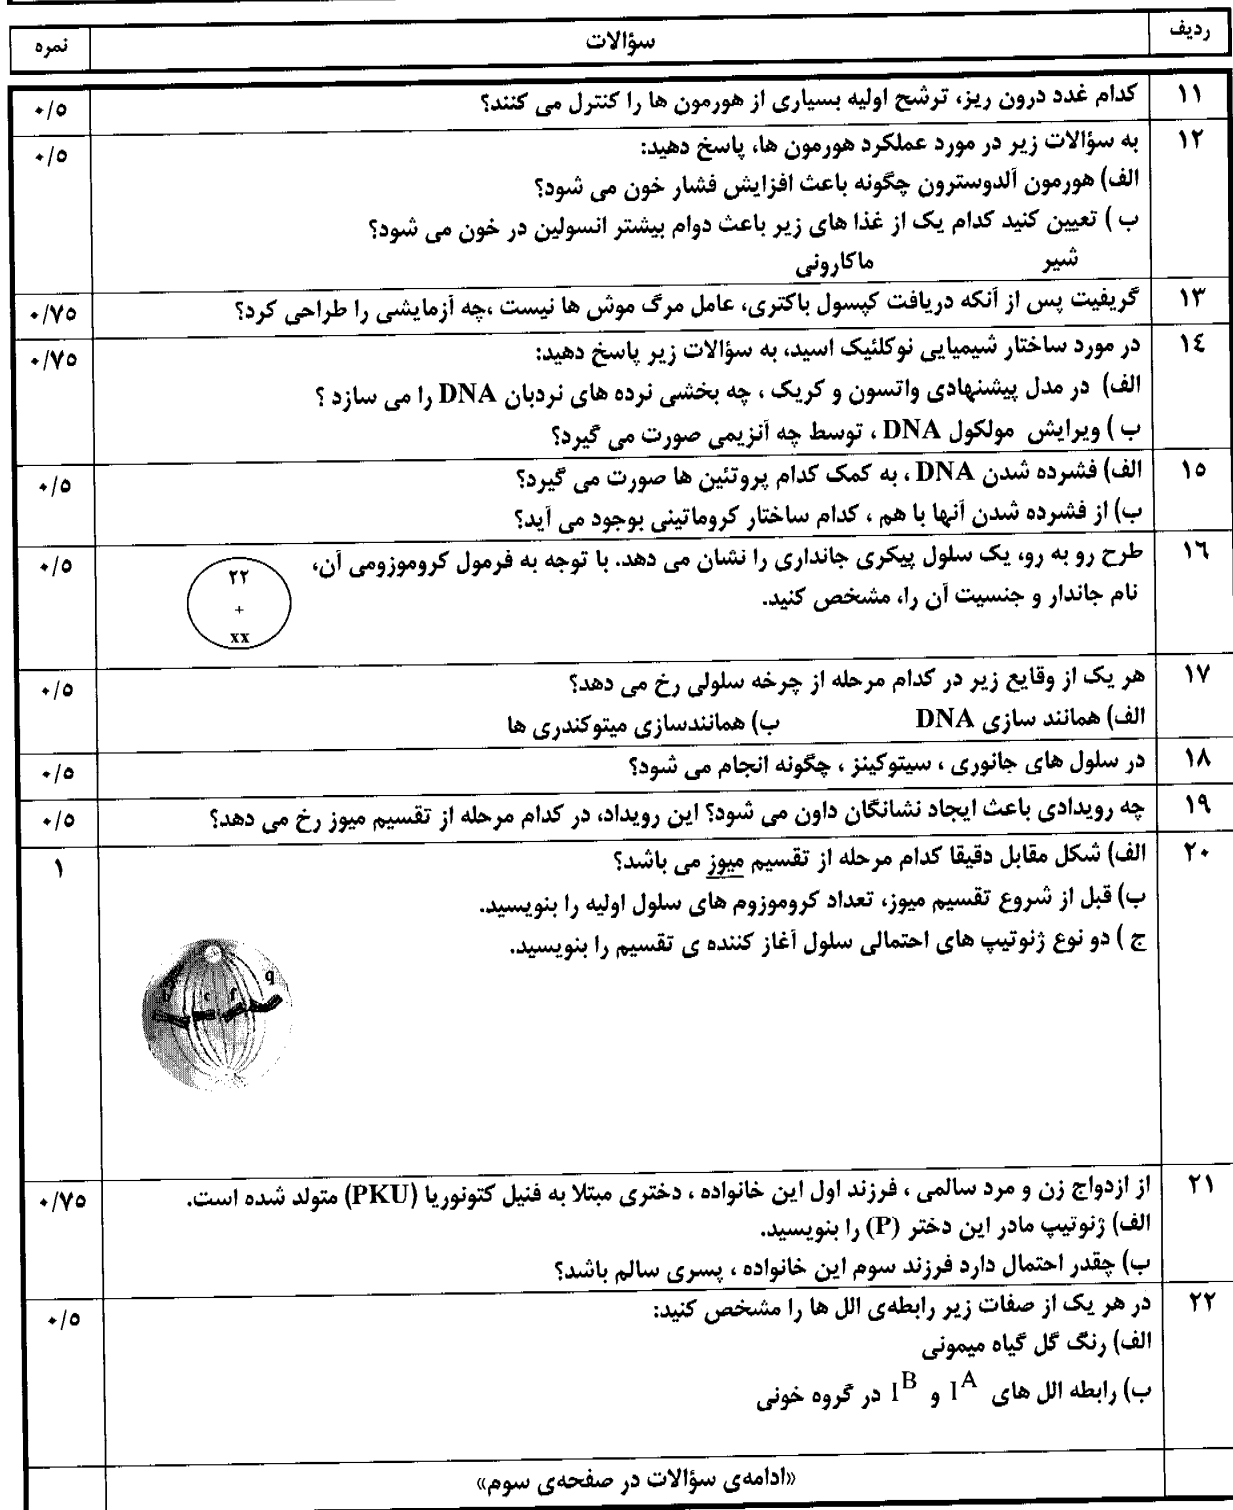 ردیف سؤالات نمره
۱۱ کدام غدد درون ریز، ترشح اولیه بسیاری از هورمون ها را کنترل می کنند؟ ۰/۵
۱۲ به سؤالات زیر در مورد عملکرد هورمون ها، پاسخ دهید: ۰/۵
الف) هورمون آلدوسترون چگونه باعث افزایش فشار خون می شود؟
ب ) تعیین کنید کدام یک از غذا های زیر باعث دوام بیشتر انسولین در خون می شود؟
شیر ماکارونی
۱۳ گریفیت پس از آنکه دریافت کپسول باکتری، عامل مرگ موش ها نیست ،چه آزمایشی را طراحی کرد؟ ۰/۷۵
۱٤ در مورد ساختار شیمیایی نوکلئیک اسید، به سؤالات زیر پاسخ دهید: ۰/۷۵
الف) در مدل پیشنهادی واتسون و کریک ، چه بخشی نرده های نردبان DNA را می سازد ؟
ب ) ویرایش مولکول DNA ، توسط چه آنزیمی صورت می گیرد؟
۱۵ الف) فشرده شدن DNA ، به کمک کدام پروتئین ها صورت می گیرد؟ ۰/۵
ب) از فشرده شدن آنها با هم ، کدام ساختار کروماتینی بوجود می آید؟
۱٦ طرح رو به رو، یک سلول پیکری جانداری را نشان می دهد. با توجه به فرمول کروموزومی آن، ۰/۵
نام جاندار و جنسیت آن را، مشخص کنید.
۲۲
+
xx
۱۷ هر یک از وقایع زیر در کدام مرحله از چرخه سلولی رخ می دهد؟ ۰/۵
الف) همانند سازی DNA ب) همانندسازی میتوکندری ها
۱۸ در سلول های جانوری ، سیتوکینز ، چگونه انجام می شود؟ ۰/۵
۱۹ چه رویدادی باعث ایجاد نشانگان داون می شود؟ این رویداد، در کدام مرحله از تقسیم میوز رخ می دهد؟ ۰/۵
۲۰ الف) شکل مقابل دقیقا کدام مرحله از تقسیم میوز می باشد؟ ۱
ب) قبل از شروع تقسیم میوز، تعداد کروموزوم های سلول اولیه را بنویسید.
ج ) دو نوع ژنوتیپ های احتمالی سلول آغاز کننده ی تقسیم را بنویسید.
b c f q
۲۱ از ازدواج زن و مرد سالمی ، فرزند اول این خانواده ، دختری مبتلا به فنیل کتونوریا (PKU) متولد شده است. ۰/۷۵
الف) ژنوتیپ مادر این دختر (P) را بنویسید.
ب) چقدر احتمال دارد فرزند سوم این خانواده ، پسری سالم باشد؟
۲۲ در هر یک از صفات زیر رابطه‌ی الل ها را مشخص کنید: ۰/۵
الف) رنگ گل گیاه میمونی
ب) رابطه الل های I^A و I^B در گروه خونی
«ادامه‌ی سؤالات در صفحه‌ی سوم»